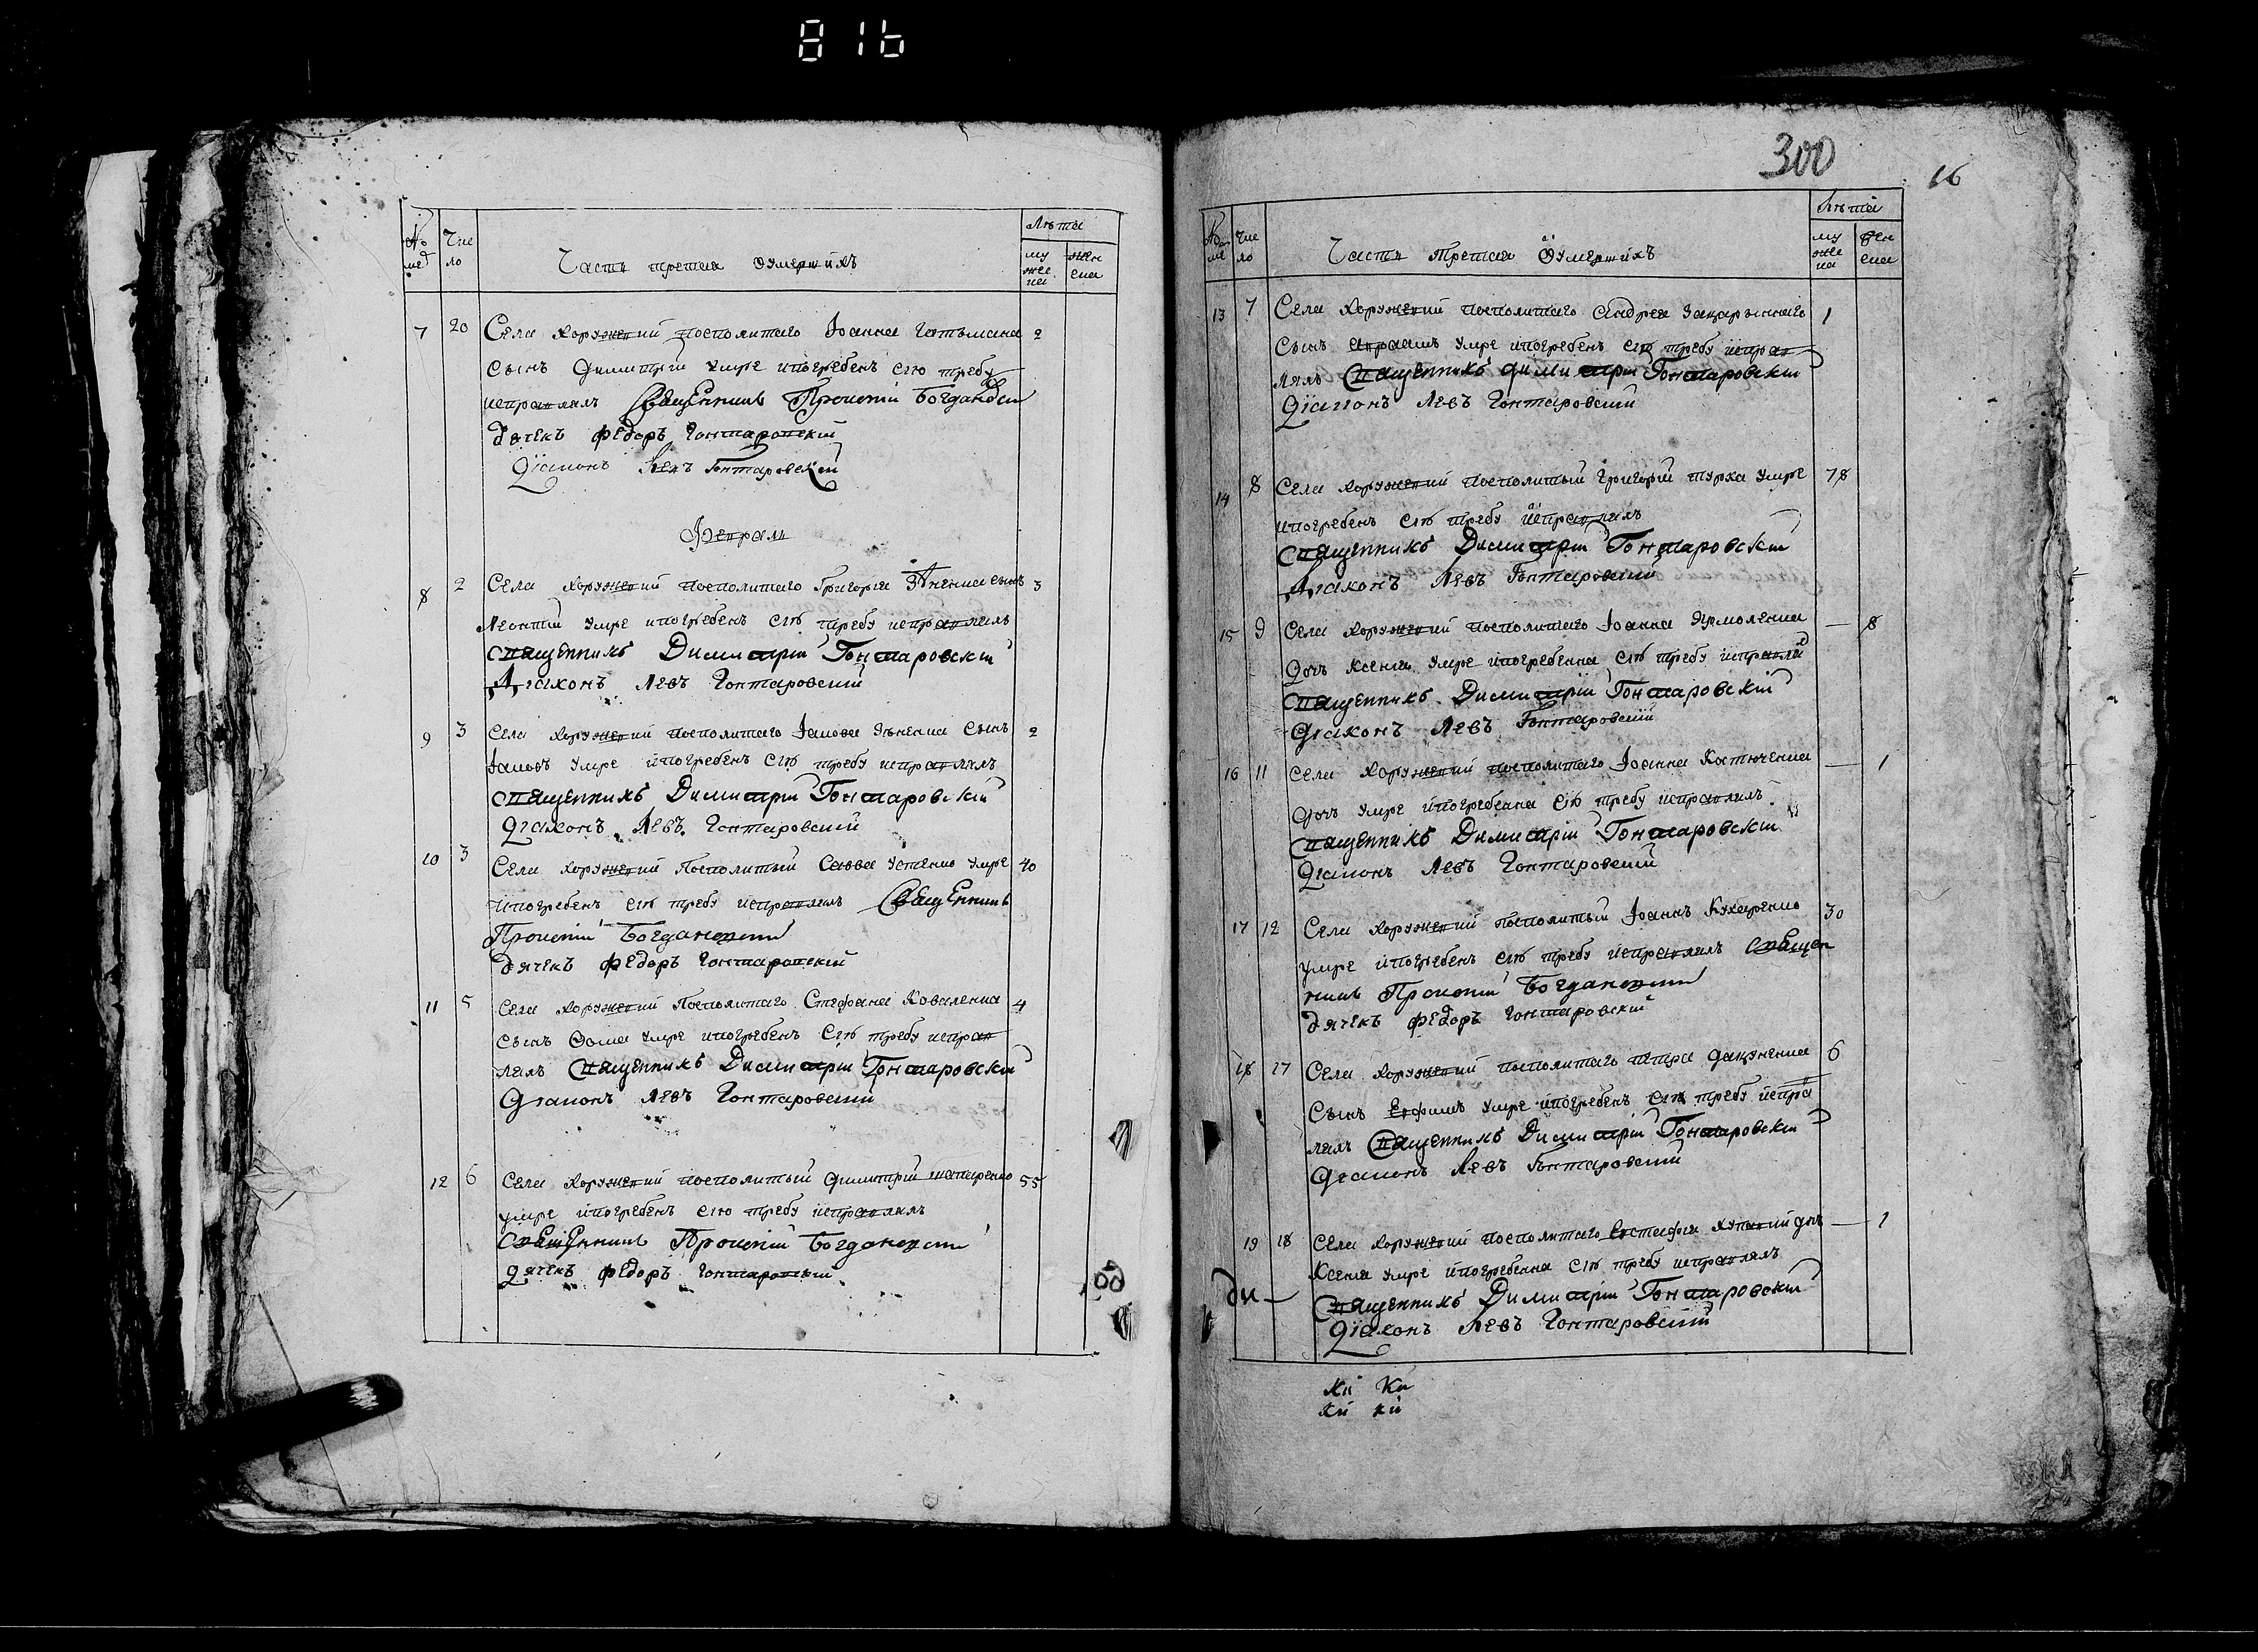 816
Но мед
Чис ло
Часть третая оумершихъ
Лѣта
му жес ка
жен ска
7 20 Села Хоружевки посполитаго Іоанна Гетьмана 2
сынъ Димитрій умре ипогребенъ сію требу
исправлялъ Священникъ Прокопій Богдановскій
дячекъ Федоръ Гонтаровскій
Діаконъ Левъ Гонтаровскій
Февраль
8 2 Села Хоружевки посполитаго Григорія сынъ 3
Леонтій умре ипогребенъ сію требу исправлялъ
Священникъ Димитрій Гонтаровскій
Діаконъ Левъ Гонтаровскій
9 3 Села Хоружевки посполитаго Іакова сынъ 2
Іаковъ умре ипогребенъ сію требу исправлялъ
Священникъ Димитрій Гонтаровскій
Діаконъ Левъ Гонтаровскій
10 3 Села Хоружевки Посполитый Савва Усенко умре 40
ипогребенъ сію требу исправлялъ Священникъ
Прокопій Богдановскій
дячекъ Федоръ Гонтаровскій
11 5 Села Хоружевки Посполитаго Стефана Коваленка 4
сынъ Фома умре ипогребенъ сію требу исправ
лялъ Священникъ Димитрій Гонтаровскій
Діаконъ Левъ Гонтаровскій
12 6 Села Хоружевки посполитый Димитрій 55
умре ипогребенъ сію требу исправлялъ
Священникъ Прокопій Богдановскій
Дячекъ Федоръ Гонтаровскій
300
16
Часть Третая Оумершихъ
Лѣта
му жес ка
жен ска
13 7 Села Хоружевки посполитаго Андрея 1
Сынъ умре ипогребенъ сію требу исправ
лялъ Священникъ Димитрій Гонтаровскій
Діаконъ Левъ Гонтаровскій
14 8 Села Хоружевки посполитый Григорій Турка умре 78
ипогребенъ сію требу исправлялъ
Священникъ Димитрій Гонтаровскій
Діаконъ Левъ Гонтаровскій
15 9 Села Хоружевки посполитаго Іоанна Ярмоленка — 8
Дочъ Ксенія умре ипогребенна сію требу исправлялъ
Священникъ Димитрій Гонтаровскій
Діаконъ Левъ Гонтаровскій
16 11 Села Хоружевки посполитаго Іоанна Костюченка — 1
дочъ умре ипогребенна сію требу исправлялъ
Священникъ Димитрій Гонтаровскій
Діаконъ Левъ Гонтаровскій
17 12 Села Хоружевки посполитый Іоаннъ Кухаренко 30
умре ипогребенъ сію требу исправлялъ Священ
никъ Прокопій Богдановскій
дячекъ Федоръ Гонтаровскій
18 17 Села Хоружевки посполитаго Петра Дацуненка 6
Сынъ Ефимъ умре ипогребенъ сію требу исправ
лялъ Священникъ Димитрій Гонтаровскій
Діаконъ Левъ Гонтаровскій
19 18 Села Хоружевки посполитаго Евстафія дочъ — 1
Ксенія умре ипогребенна сію требу исправлялъ
ди— Священникъ Димитрій Гонтаровскій
Діаконъ Левъ Гонтаровскій
Ки Ки
Ки ки